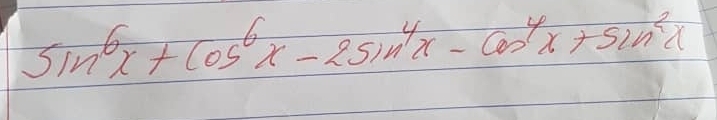 sin⁶x + cos⁶x - 2sin⁴x - cos⁴x + sin²x